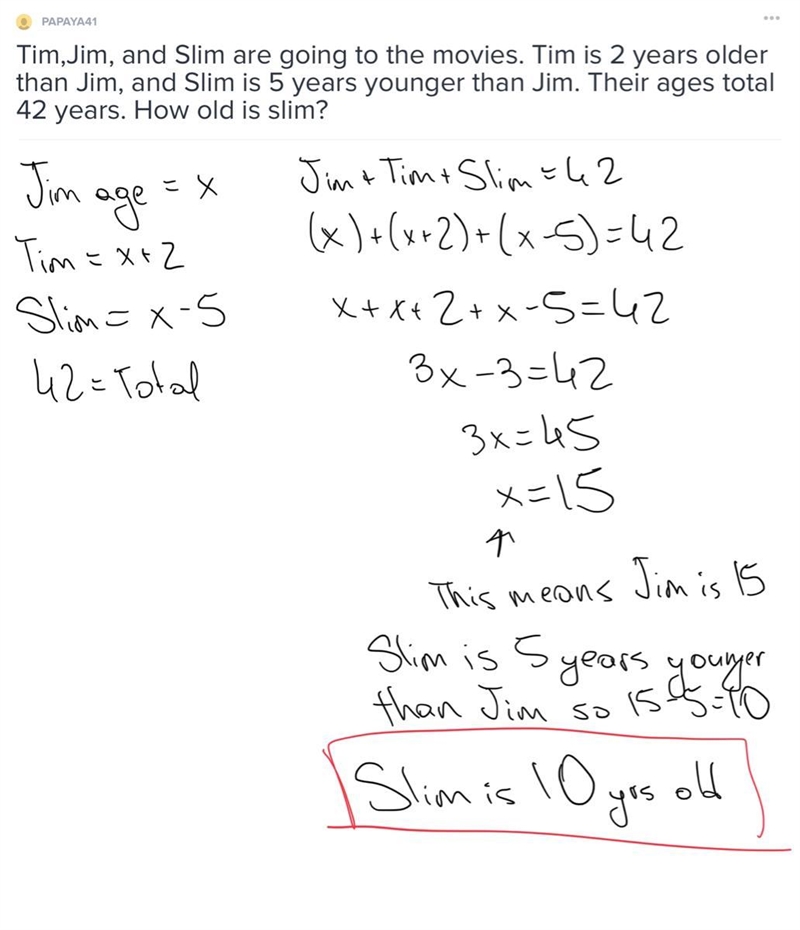 PAPAYA41
Tim,Jim, and Slim are going to the movies. Tim is 2 years older
than Jim, and Slim is 5 years younger than Jim. Their ages total
42 years. How old is slim?
Jim age = x
Tim = x+2
Slim = x-5
42 = Total
Jim + Tim + Slim = 42
(x)+(x+2)+(x-5)=42
x+x+2+x-5=42
3x-3=42
3x=45
x=15
↑
This means Jim is 15
Slim is 5 years younger
than Jim so 15-5=10
Slim is 10 yrs old